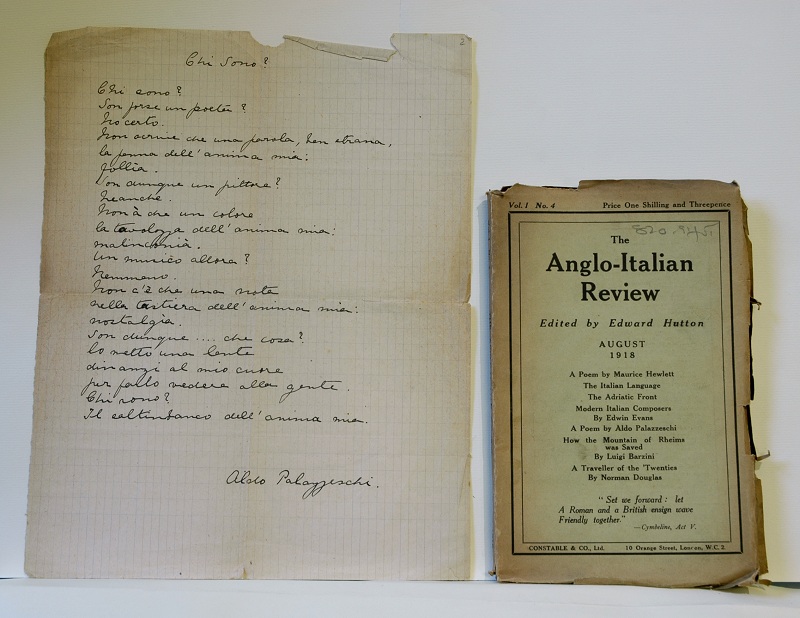 2
Chi sono?
Chi sono?
Son forse un poeta?
No certo.
Non scrive che una parola, ben strana,
la penna dell'anima mia:
follia.
Son dunque un pittore?
Neanche.
Non à che un colore
la tavolozza dell'anima mia:
malinconia.
Un musico allora?
Nemmeno.
Non c'è che una nota
nella tastiera dell'anima mia:
nostalgia.
Son dunque .... che cosa?
Io metto una lente
dinanzi al mio cuore
per farlo vedere alla gente.
Chi sono?
Il saltimbanco dell'anima mia.
Aldo Palazzeschi.
Vol. I No. 4 Price One Shilling and Threepence
820.945
The
Anglo-Italian
Review
Edited by Edward Hutton
AUGUST
1918
A Poem by Maurice Hewlett
The Italian Language
The Adriatic Front
Modern Italian Composers
By Edwin Evans
A Poem by Aldo Palazzeschi
How the Mountain of Rheims
was Saved
By Luigi Barzini
A Traveller of the 'Twenties
By Norman Douglas
"Set we forward: let
A Roman and a British ensign wave
Friendly together."
—Cymbeline, Act V.
CONSTABLE & CO., Ltd. 10 Orange Street, London, W.C. 2